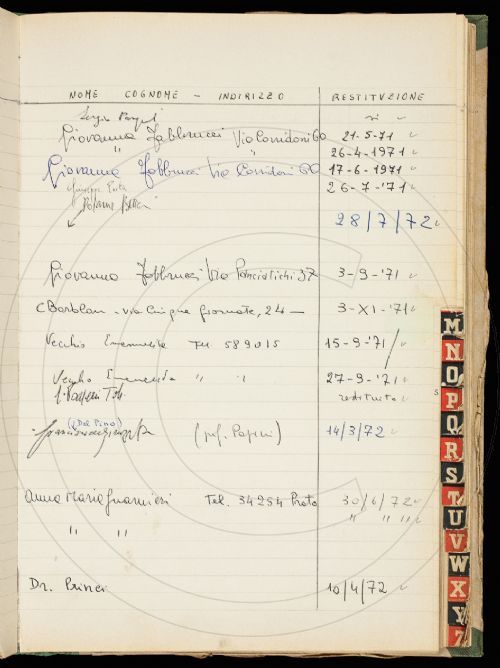 NOME COGNOME - INDIRIZZO RESTITUZIONE
Sergio
Giovanna Fabbrucci Via Corridoni 60 21-5-71
" " 26-4-1971
Giovanna Fabbrucci Via Corridoni 60 17-6-1971
Giuseppe 26-7-'71
28/7/72
Giovanna Fabbrucci Via Panciatichi 37 3-9-'71
C Bartolan - via Cinque Giornate, 24 - 3-XI-'71
Vecchio Emanuela Tel. 589015 15-9-'71
Vecchio Emanuela " " 27-9-'71
restituito
(Del Pino)
(prof. Papini) 14/3/72
Anna Maria Guarnieri Tel. 34254 Prato 30/6/72
" " " " "
Dr. Prinei 10/4/72
M
N
O
P
Q
R
S
T
U
V
W
X
Y
Z